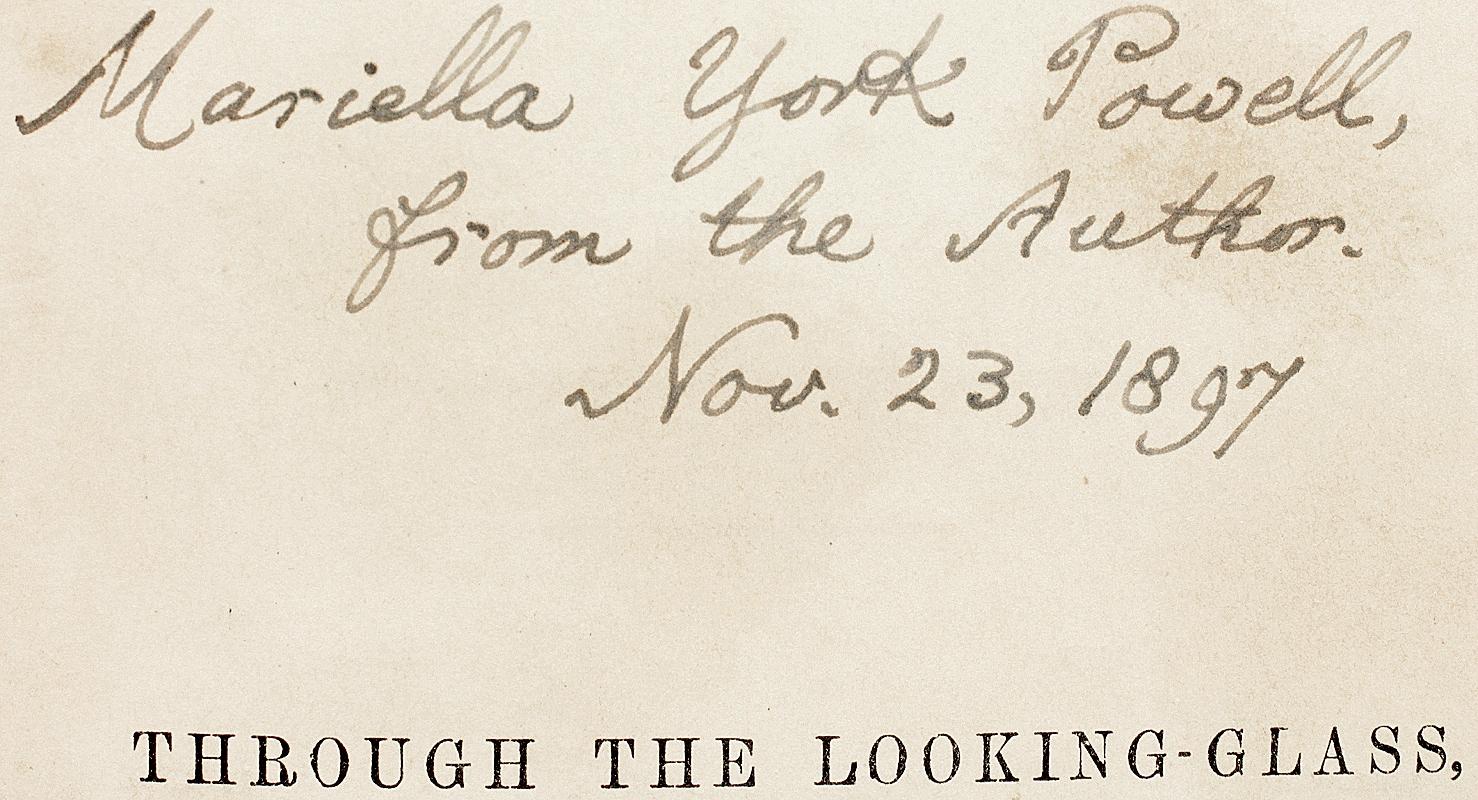 Mariella York Powell,
from the Author.
Nov. 23, 1897
THROUGH THE LOOKING-GLASS,